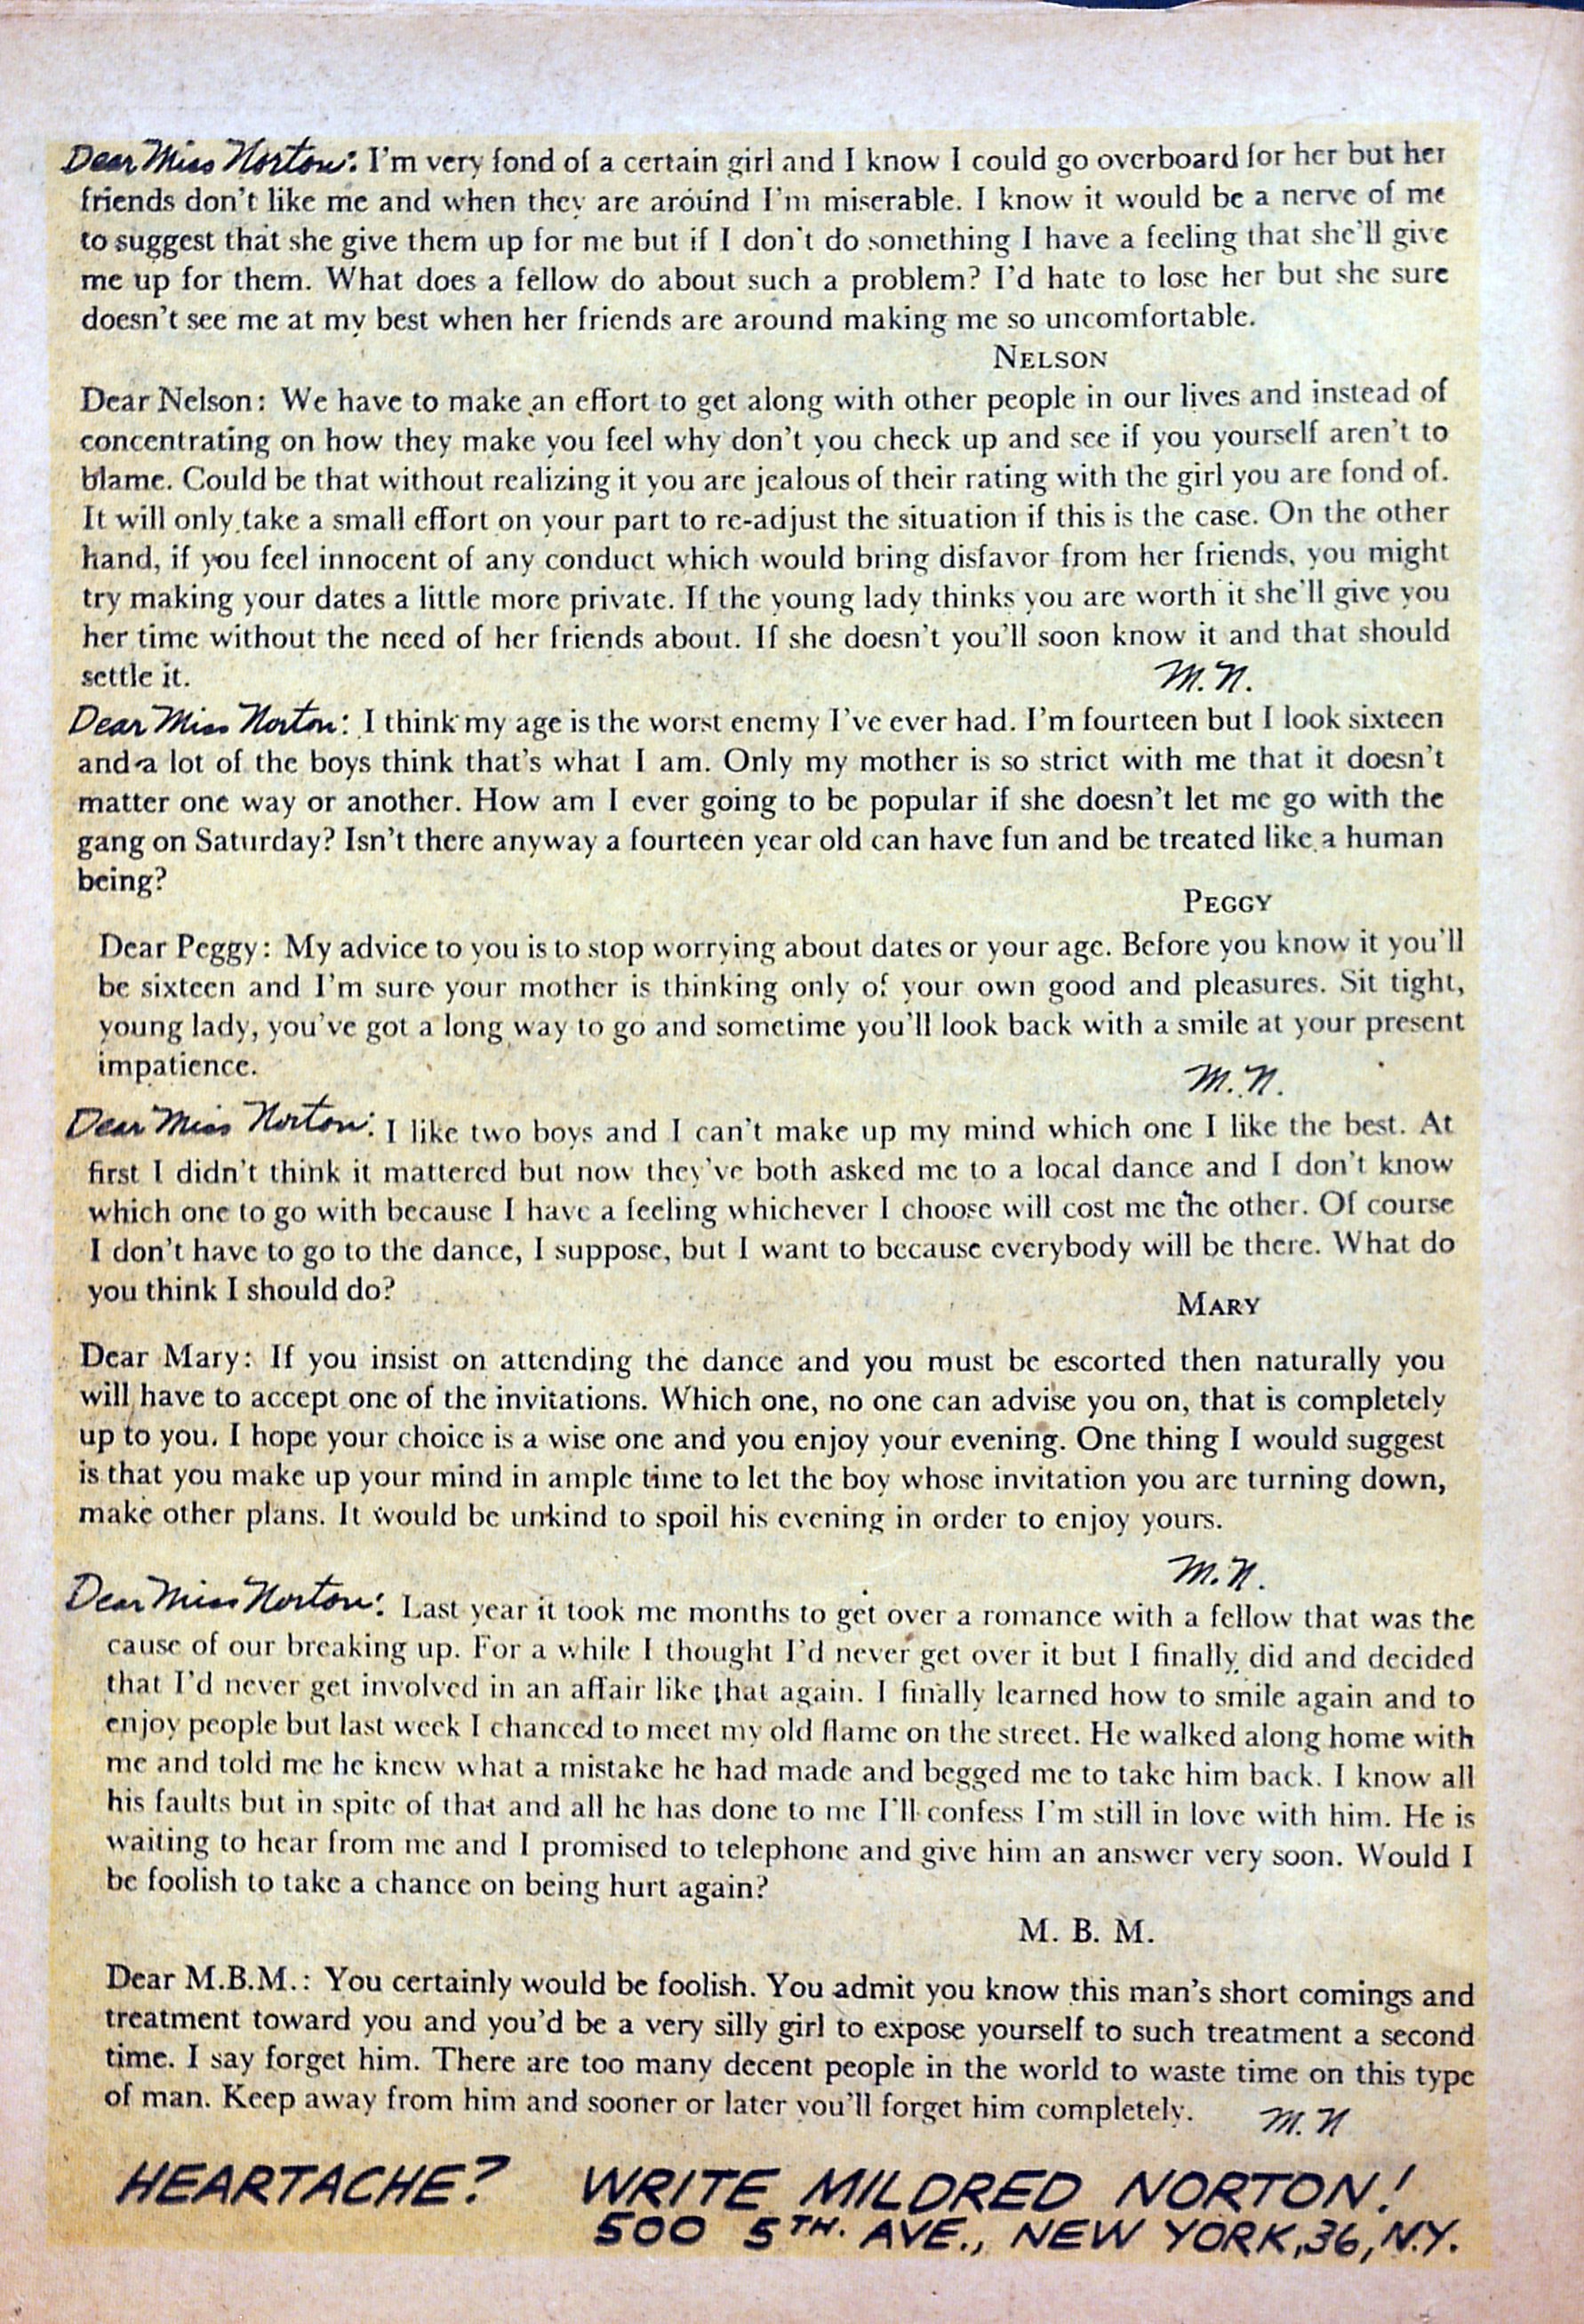 Dear Miss Norton: I'm very fond of a certain girl and I know I could go overboard for her but her
friends don't like me and when they are around I'm miserable. I know it would be a nerve of me
to suggest that she give them up for me but if I don't do something I have a feeling that she'll give
me up for them. What does a fellow do about such a problem? I'd hate to lose her but she sure
doesn't see me at my best when her friends are around making me so uncomfortable.
NELSON
Dear Nelson: We have to make an effort to get along with other people in our lives and instead of
concentrating on how they make you feel why don't you check up and see if you yourself aren't to
blame. Could be that without realizing it you are jealous of their rating with the girl you are fond of.
It will only take a small effort on your part to re-adjust the situation if this is the case. On the other
hand, if you feel innocent of any conduct which would bring disfavor from her friends, you might
try making your dates a little more private. If the young lady thinks you are worth it she'll give you
her time without the need of her friends about. If she doesn't you'll soon know it and that should
settle it.
M.N.
Dear Miss Norton: I think my age is the worst enemy I've ever had. I'm fourteen but I look sixteen
and a lot of the boys think that's what I am. Only my mother is so strict with me that it doesn't
matter one way or another. How am I ever going to be popular if she doesn't let me go with the
gang on Saturday? Isn't there anyway a fourteen year old can have fun and be treated like a human
being?
PEGGY
Dear Peggy: My advice to you is to stop worrying about dates or your age. Before you know it you'll
be sixteen and I'm sure your mother is thinking only of your own good and pleasures. Sit tight,
young lady, you've got a long way to go and sometime you'll look back with a smile at your present
impatience.
M.N.
Dear Miss Norton: I like two boys and I can't make up my mind which one I like the best. At
first I didn't think it mattered but now they've both asked me to a local dance and I don't know
which one to go with because I have a feeling whichever I choose will cost me the other. Of course
I don't have to go to the dance, I suppose, but I want to because everybody will be there. What do
you think I should do?
MARY
Dear Mary: If you insist on attending the dance and you must be escorted then naturally you
will have to accept one of the invitations. Which one, no one can advise you on, that is completely
up to you. I hope your choice is a wise one and you enjoy your evening. One thing I would suggest
is that you make up your mind in ample time to let the boy whose invitation you are turning down,
make other plans. It would be unkind to spoil his evening in order to enjoy yours.
M.N.
Dear Miss Norton: Last year it took me months to get over a romance with a fellow that was the
cause of our breaking up. For a while I thought I'd never get over it but I finally did and decided
that I'd never get involved in an affair like that again. I finally learned how to smile again and to
enjoy people but last week I chanced to meet my old flame on the street. He walked along home with
me and told me he knew what a mistake he had made and begged me to take him back. I know all
his faults but in spite of that and all he has done to me I'll confess I'm still in love with him. He is
waiting to hear from me and I promised to telephone and give him an answer very soon. Would I
be foolish to take a chance on being hurt again?
M. B. M.
Dear M.B.M.: You certainly would be foolish. You admit you know this man's short comings and
treatment toward you and you'd be a very silly girl to expose yourself to such treatment a second
time. I say forget him. There are too many decent people in the world to waste time on this type
of man. Keep away from him and sooner or later you'll forget him completely.
M.N
HEARTACHE? WRITE MILDRED NORTON!
500 5TH. AVE., NEW YORK, 36, N.Y.